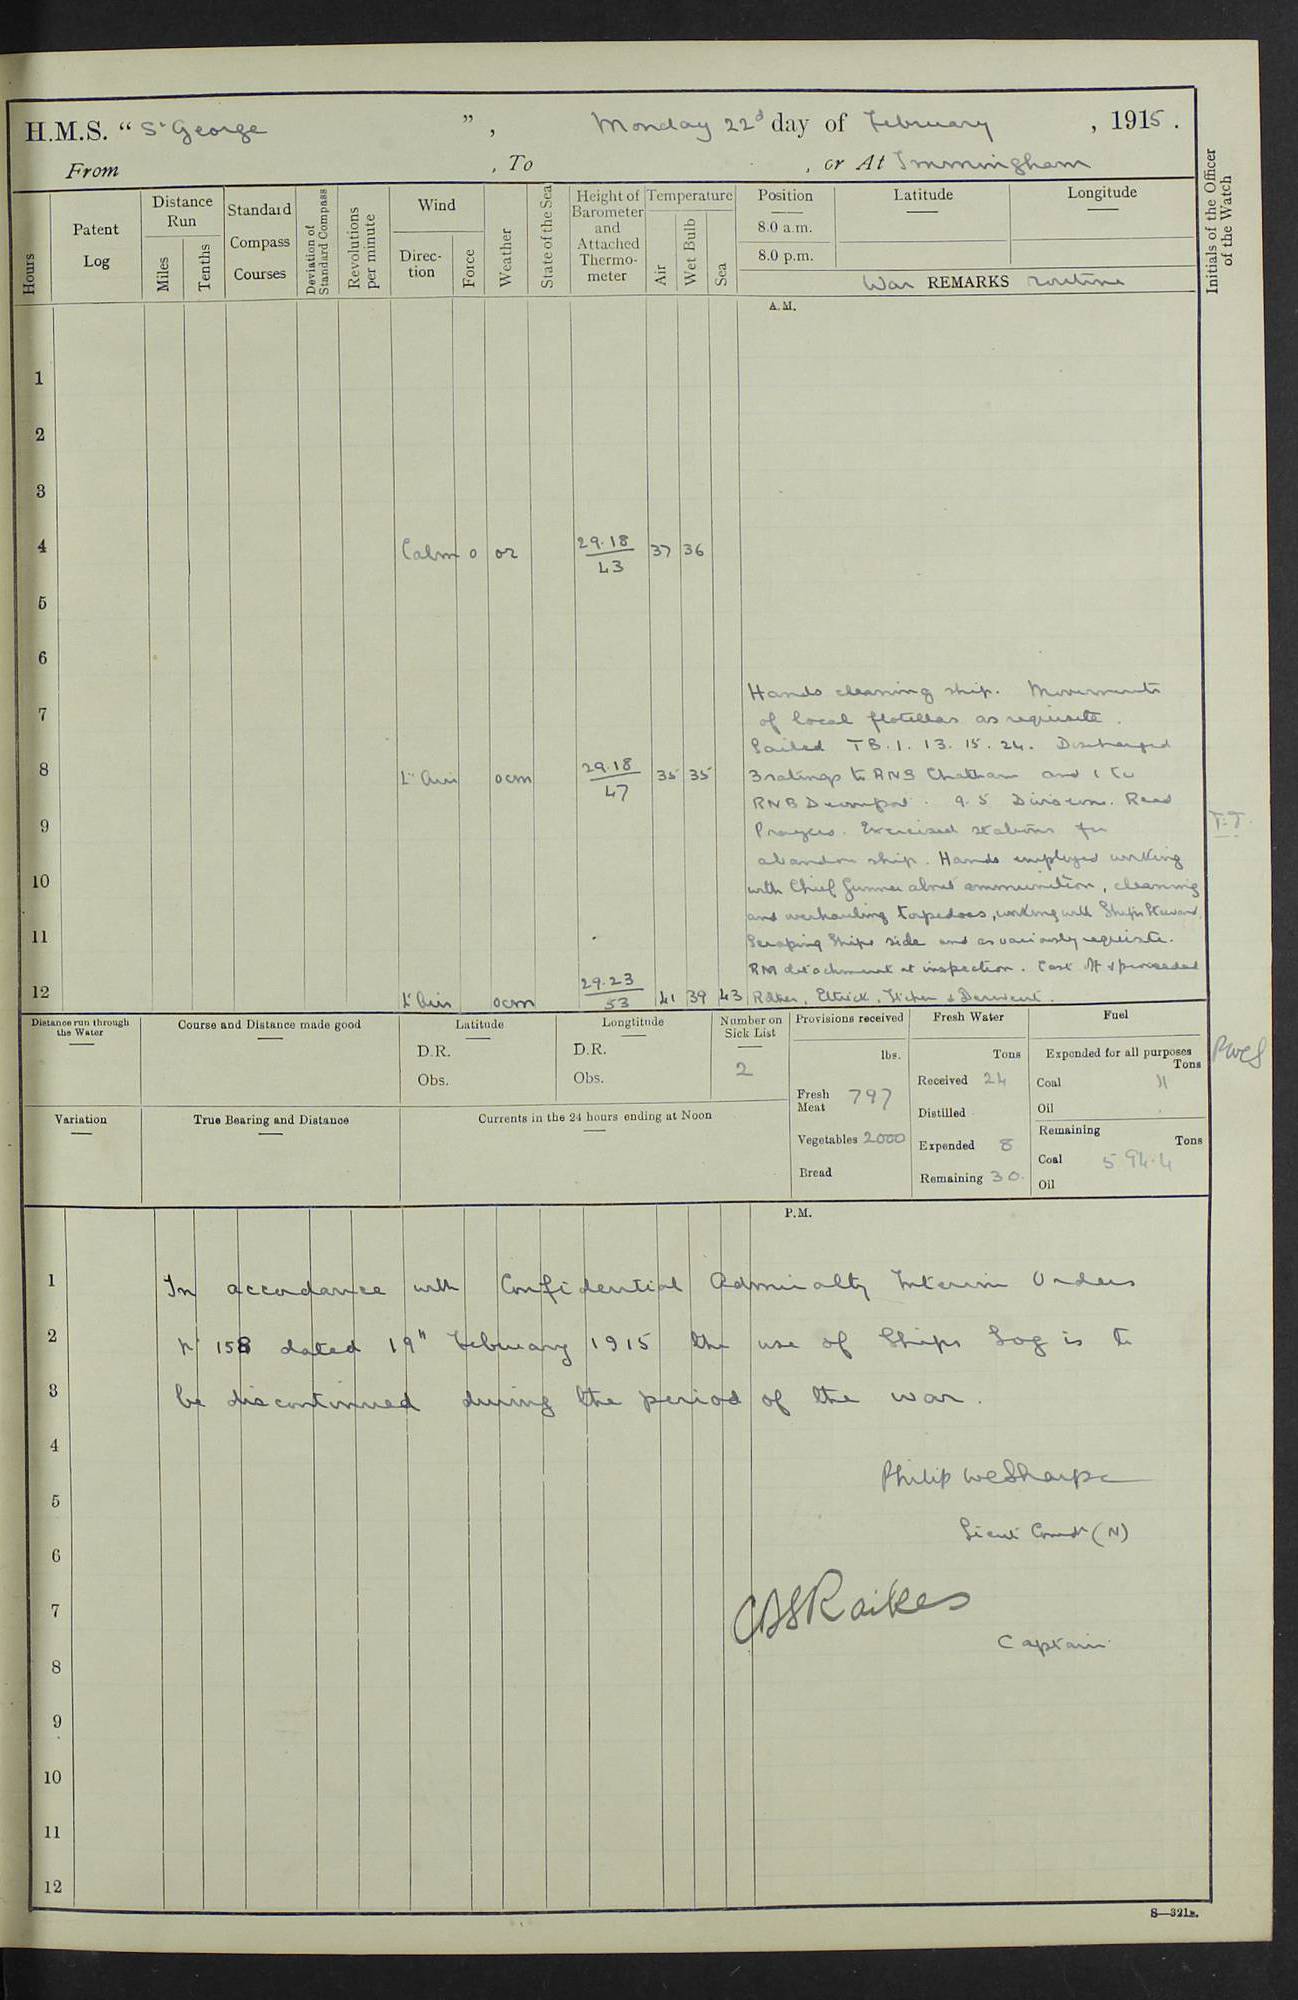 H.M.S. “ St George ” , Monday 22d day of February , 1915 .
From , To , or At Immingham
Hours
Patent Log
Distance Run
Miles
Tenths
Standard Compass Courses
Deviation of Standard Compass
Revolutions per minute
Wind
Direction
Force
Weather
State of the Sea
Height of Barometer and Attached Thermometer
Temperature
Air
Wet Bulb
Sea
Position
8.0 a.m.
8.0 p.m.
Latitude
Longitude
War REMARKS routine
Initials of the Officer of the Watch
A.M.
1
2
3
4 Calm 0 or 29.18 43 37 36
5
6
Hands cleaning ship. Movements
7 of local flotillas as requisite.
Sailed TB. 1. 13. 15. 24. Discharged
8 Lt Airs ocm 29.18 47 35 35 3 ratings to RNB Chatham and 1 to
RNB Devonport. 9.5 Divisions. Read
9 Prayers. Exercised stations for T.J.
abandon ship. Hands employed working
10 with Chief Gunner about ammunition, cleaning
and overhauling torpedoes, working with Ships Steward,
11 Scraping Ships side and as variously requisite.
RM detachment at inspection. Cast off & proceeded
12 Lt Airs ocm 29.23 53 41 39 43 Ettrick, Itchen & Derwent.
Distance run through the Water
Course and Distance made good
Latitude
D.R.
Obs.
Longtitude
D.R.
Obs.
Number on Sick List
2
Provisions received
lbs.
Fresh Meat 797
Vegetables 2000
Bread
Fresh Water
Tons
Received 24
Distilled
Expended 8
Remaining 30
Fuel
Expended for all purposes
Tons
Coal 11
Oil
Remaining
Tons
Coal 594.4
Oil
PWCS
Variation
True Bearing and Distance
Currents in the 24 hours ending at Noon
P.M.
1 In accordance with Confidential Admiralty Interim Orders
2 No 158 dated 19th February 1915 the use of Ships Log is to
3 be discontinued during the period of the war.
4
Philip WC Sharpe
5
Lieut Comdr (N)
6
7 CDS Raikes
Captain
8
9
10
11
12
S—321B.